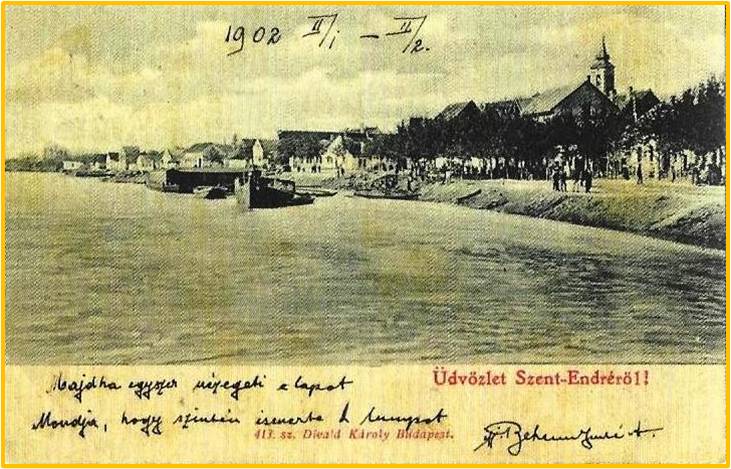 1902 II/1 – II/2.
Üdvözlet Szent-Endréről!
Majdha egyszer nézegeti e lapot
Mondja, hogy szintén ismerte
413. sz. Divald Károly Budapest.